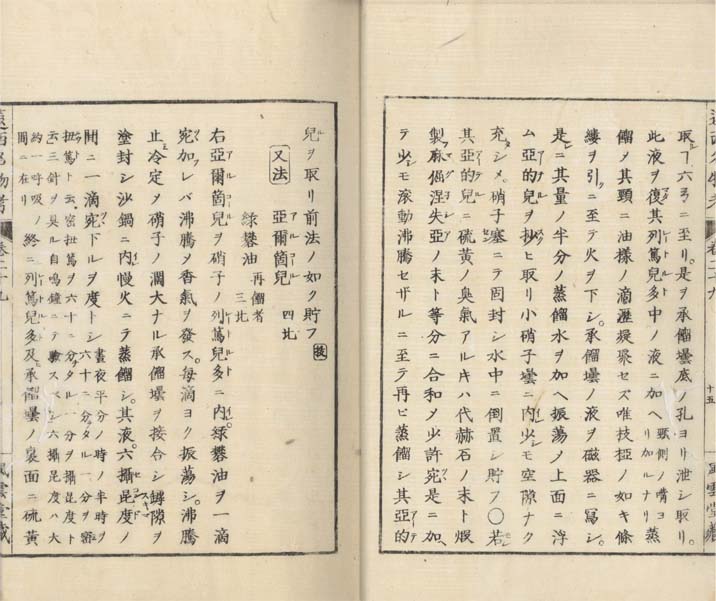 取ヿ六ヲニ至リ。是ヲ承餾壜底ノ孔ヨリ泄シ取リ。
此液ヲ復其列篤兒多中ノ液ニ加ヘ頸側ノ嘴ヨリ加ルナリ蒸
餾メ其頭ニ油様ノ滴瀝凝聚セズ唯枝椏ノ如キ條
縷ヲ引クニ至テ火ヲ下シ。承餾壜ノ液ヲ磁器ニ寫シ。
是ニ其量ノ半分ノ蒸餾水ヲ加ヘ振蕩メ上面ニ浮
ム亞的兒ヲ抄ヒ取リ小硝子壜ニ内レ少モ空隙ナク
充タシメ。硝子塞ニテ固封シ水中ニ倒置シ貯フ〇若
其亞的兒ニ硫黄ノ臭氣アルキハ代赫石ノ末ト煅
製麻倔涅失亞ノ末ト等分ニ合和メ少許宛是ニ加ヘ
テ少モ滾動沸騰セザルニ至テ再ヒ蒸餾シ其亞的
遠西名物考 巻二十九
十五
風雲堂藏
兒ヲ取リ前法ノ如ク貯フ
又法 亞爾箇兒 四
緑礬油 再餾者 三
右亞爾箇兒ヲ硝子ノ列篤兒多ニ内レ緑礬油ヲ一滴
宛加フレバ沸騰メ香氣ヲ發ス。毎滴ヨク振蕩シ。沸騰
止冷定メ硝子ノ濶大ナル承餾壜ヲ接合シ罅隙ヲ
塗封シ沙鍋ニ内レ慢火ニテ蒸餾シ。其液。六攝昆度ノ
間ニ一滴宛下ルヲ度トシ晝夜平分ノ時ノ半時ヲ六十ニ分タル一分ヲ密
扭篤ト云。密扭篤ヲ六十ニ分タル一分ヲ攝昆度ト
云三針ヲ具ル自鳴鐘ニテ驗スベシ六攝昆度ハ大
約一呼吸ノ間ニ在リ終ニ列篤兒多及承餾壜ノ裏面ニ硫黄
遠西名物考 巻二十九
風雲堂藏